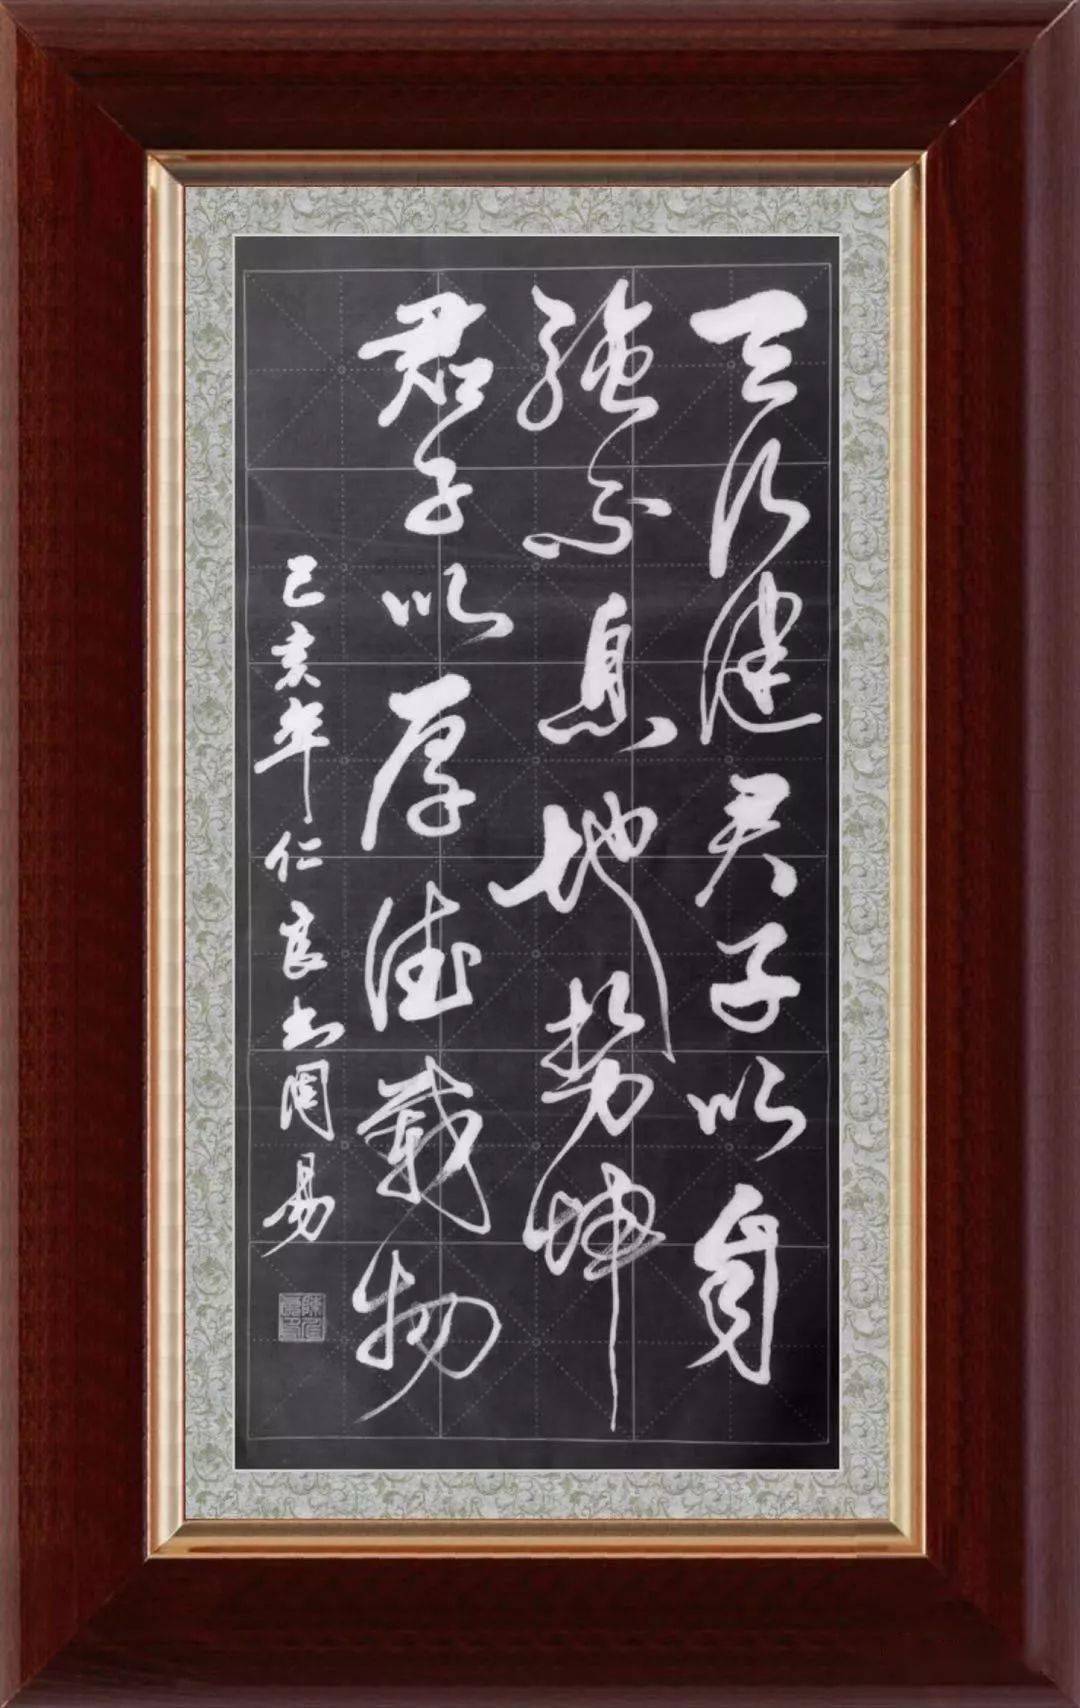 天行健君子以身
强不息地势坤
君子以厚德载物
己亥年仁良书周易